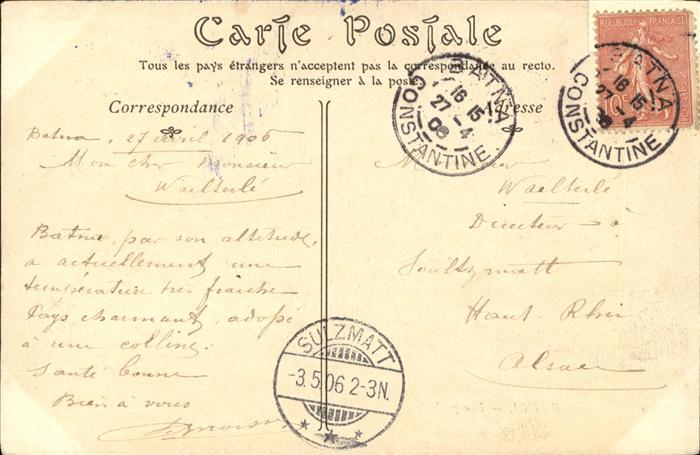 Carte Postale
Tous les pays étrangers n'acceptent pas la correspondance au recto.
Se renseigner à la poste.
Correspondance
Adresse
REPUBLIQUE FRANÇAISE
10c
BATNA
16 15
27 - 4
06
CONSTANTINE
BATNA
16 15
27 - 4
CONSTANTINE
Batna, 27 avril 1906
Mon cher Monsieur
Waelterlé
Batna, par son altitude,
a actuellement une
température très fraiche
Pays charmant, adossé
à une colline.
Santé bonne
Bien à vous
Monsieur
Waelterlé
Directeur à
Soultzmatt
Haut-Rhin
Alsace
SULZMATT
-3.5.06 2-3N.